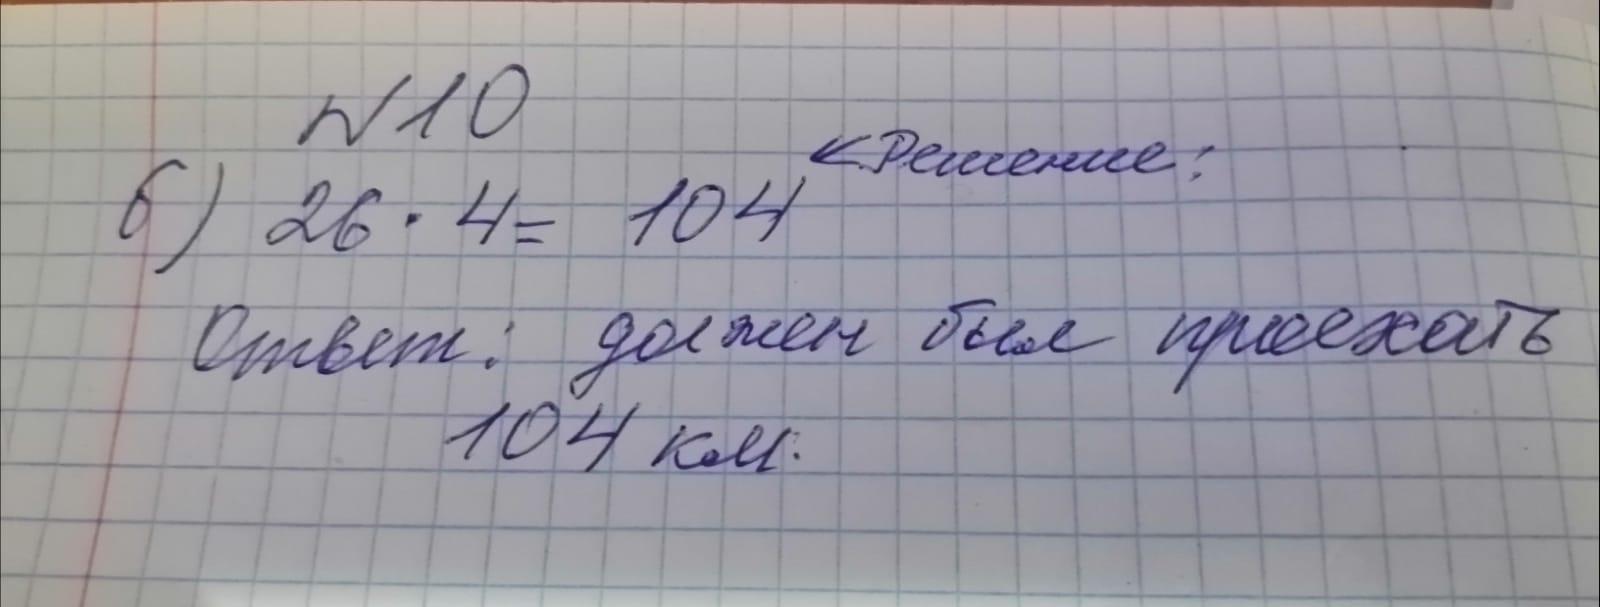 №10
< Решение:
б) 26 · 4 = 104
Ответ: должен был проехать
104 км.